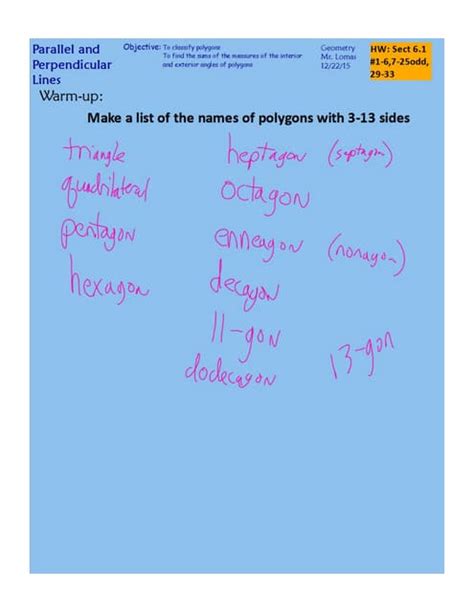 Parallel and Perpendicular Lines
Objective: To classify polygons
To find the sums of the measures of the interior and exterior angles of polygons
Geometry
Mr. Lomas
12/22/15
HW: Sect 6.1
#1-6,7-25odd,
29-33
Warm-up:
Make a list of the names of polygons with 3-13 sides
triangle
quadrilateral
pentagon
hexagon
heptagon (septagon)
octagon
enneagon (nonagon)
decagon
11-gon
dodecagon
13-gon